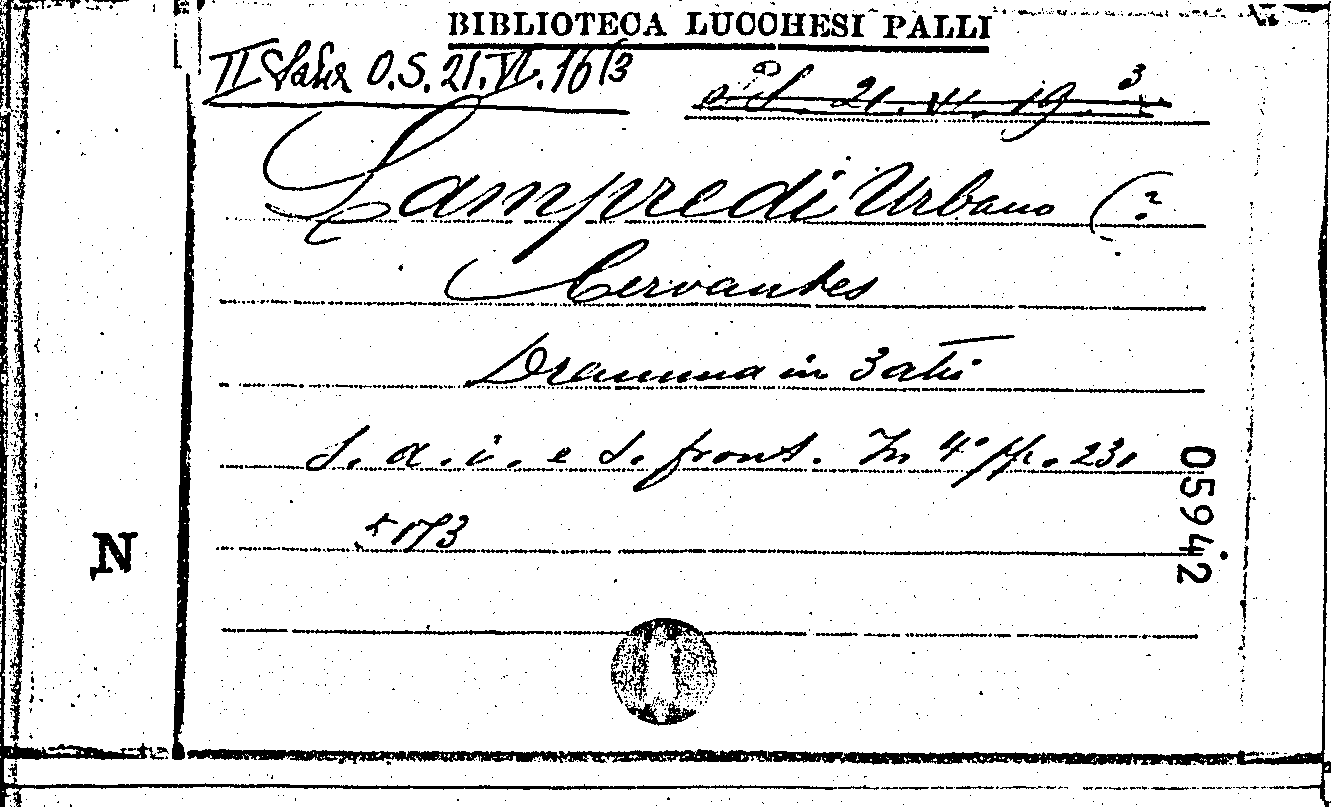 BIBLIOTECA LUCCHESI PALLI
II Sala O.S. 21.VI.16/3
21. VI. 19. 3
Lampredi Urbano (?
Cervantes
Dramma in 3 atti
S. a. i. e s. front. In 4° pp. 231
N
05942